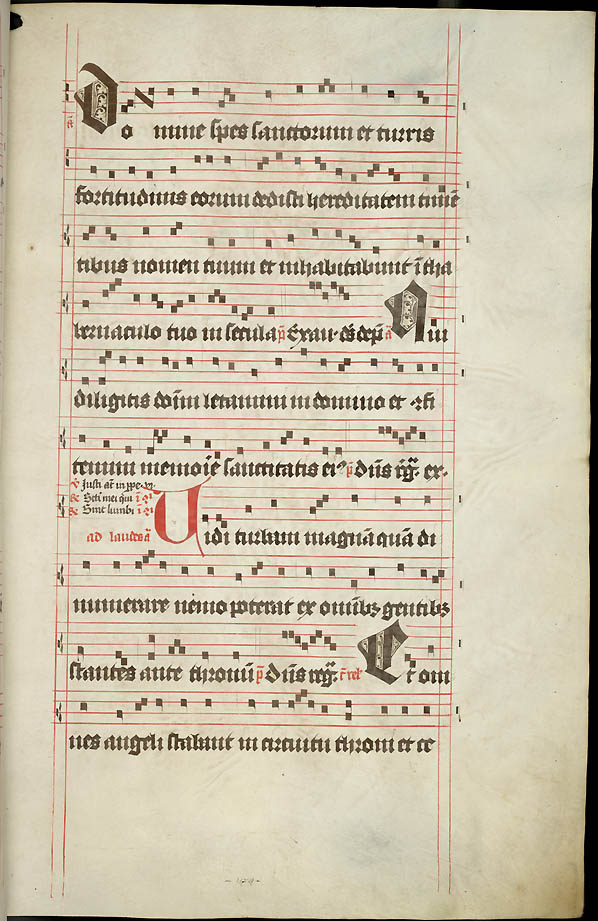 Domine spes sanctorum et turris
fortitudinis eorum dedisti hereditatem timē
tibus nomen tuum et inhabitabunt ī tha
bernaculo tuo in secula p̄ Exau. a̅ Qui
diligitis dom̄ letamini in domino et cōfi
temini memorie sanctitatis ei⁹ p̄ Dn̄s reḡ. ex.
℣ Justi aūt in ppe.
℞ Scī mei qui ī
℞ Sint lumbi
ad laudes a̅ Uidi turbam magnā quā di
numerare nemo poterat ex omībꝫ gentibꝫ
stantes ante thronū p̄ Dn̄s reḡ. Et om
nes angeli stabant in circuitu throni et ce